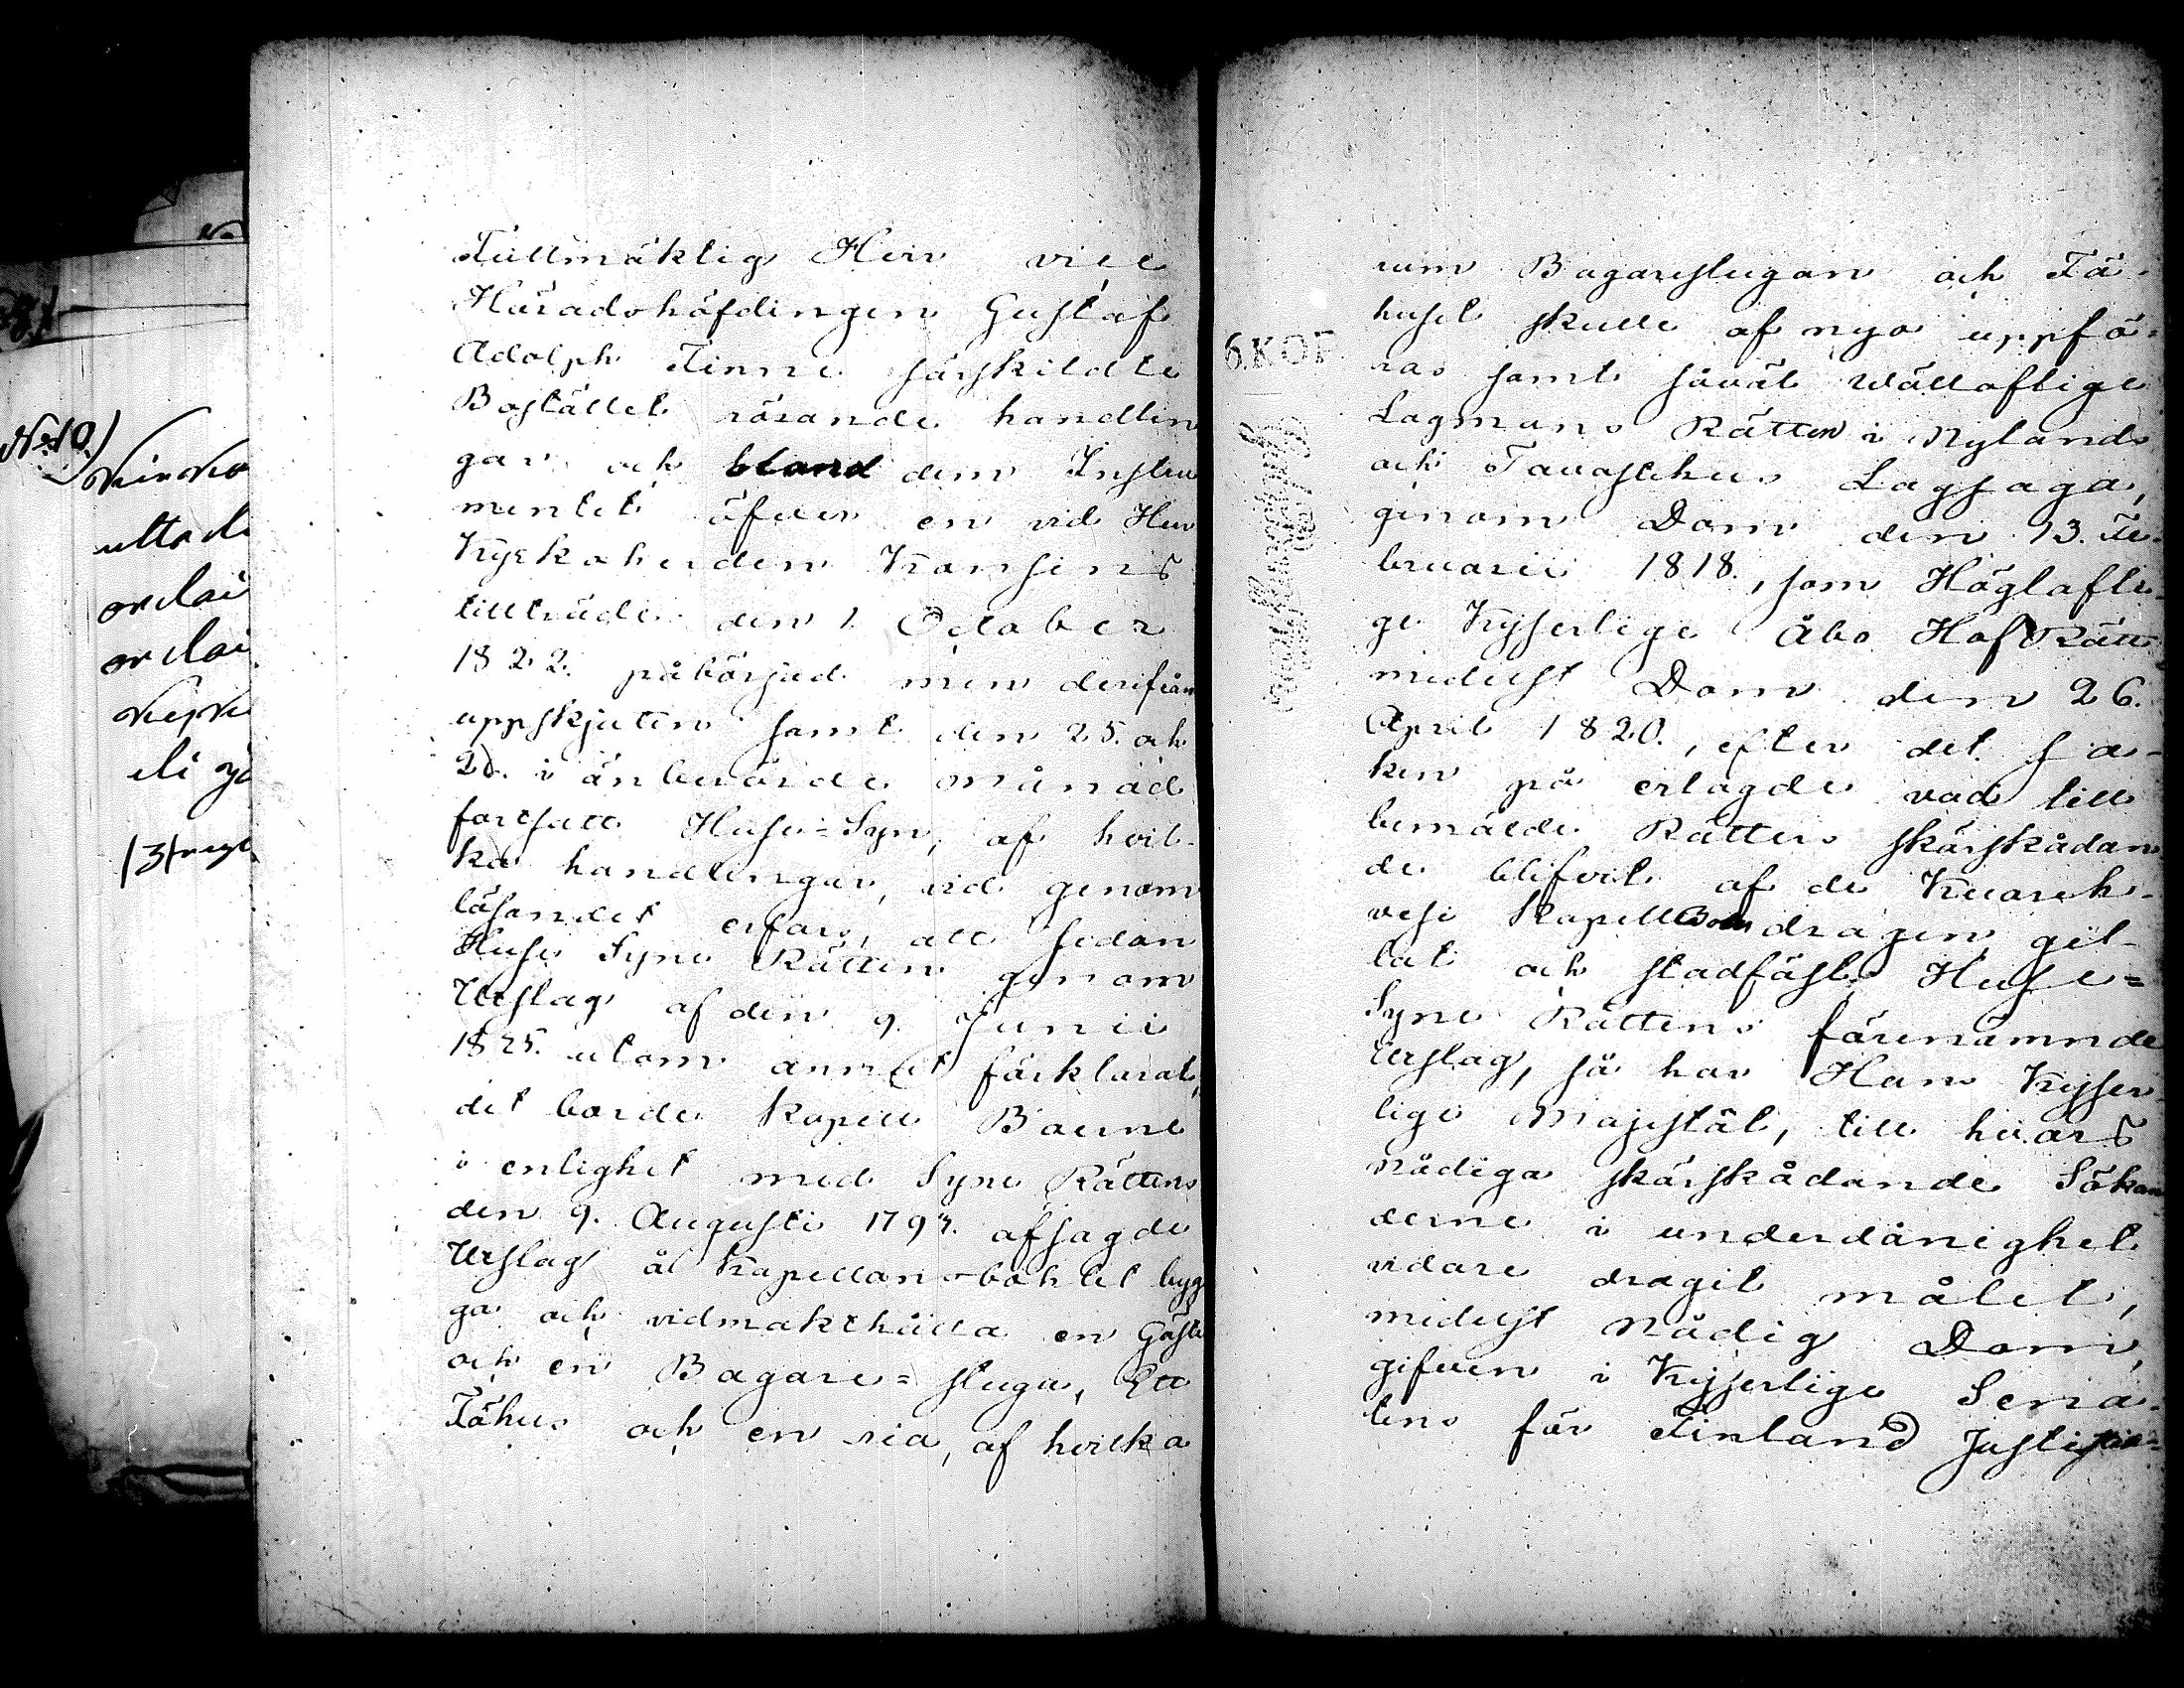 No 10.)
Fullmäktig Herr vice
Häradshöfdingen Gustaf
Adolph Finne särskildte
Bostället rörande handlin
gar och bland dem Instru
mentet öfver en vid Herr
Kyrkoherden Konsins
tillträde den 1 October
1822. påbörjad men derifrån
uppskjuten samt den 25. och
26. i änberörde månad
fortsatt Huse-Syn, af hvil-
ka handlingar, vid genom
läsandet erfars, att sedan
Huse Syne Rätten genom
Utslag af den 9. Junii
1815. utom annat förklarat,
det borde Kapell Boerne
i enlighet med Syne Rättens
den 9. Augusti 1797. afsagde
Utslag å Kapellans-bohlet byg
ga och vidmakthålla en Gäste
och en Bagare-stuga, Ett
Fähus och en ria, af hvilka
rum Bagarstugan och Fä-
huset skulle af nyo uppfö-
ras samt såväl Wällofligе
Lagmans Rätten i Nylands
och Tavastehus Lagsaga,
genom Dom den 13. Fe-
bruarii 1818., som Höglofli-
ge Kejserlige Åbo Hof Rätt
medelst Dom den 26.
April 1820., efter det sa-
ken på erlagde vad till
bemälde Rätters skärskådan
de blifvit af de Kuareh-
vesi Kapell Boer dragen, gil-
lat och stadfäst Huse-
Syne Rättens förenämnde
Utslag, så har Hans Kejser-
lige Majestät, till hvars
Nådiga skärskådande Sökan
derne i underdånighet
vidare dragit målet,
medelst Nådig Dom,
gifven i Kejserlige Sena-
tens för Finland Justitiæ-
6. KOP